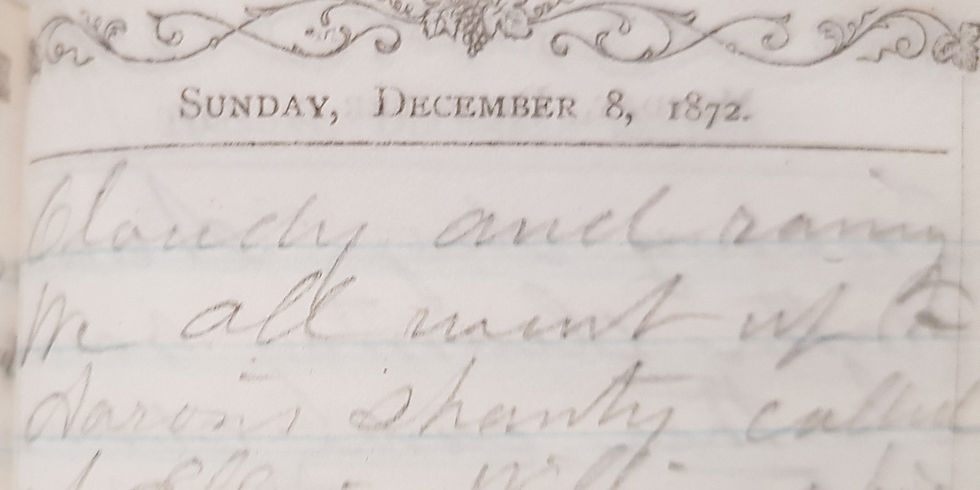 SUNDAY, DECEMBER 8, 1872.
Cloudy and rainy
We all went up to
Aarons shanty called